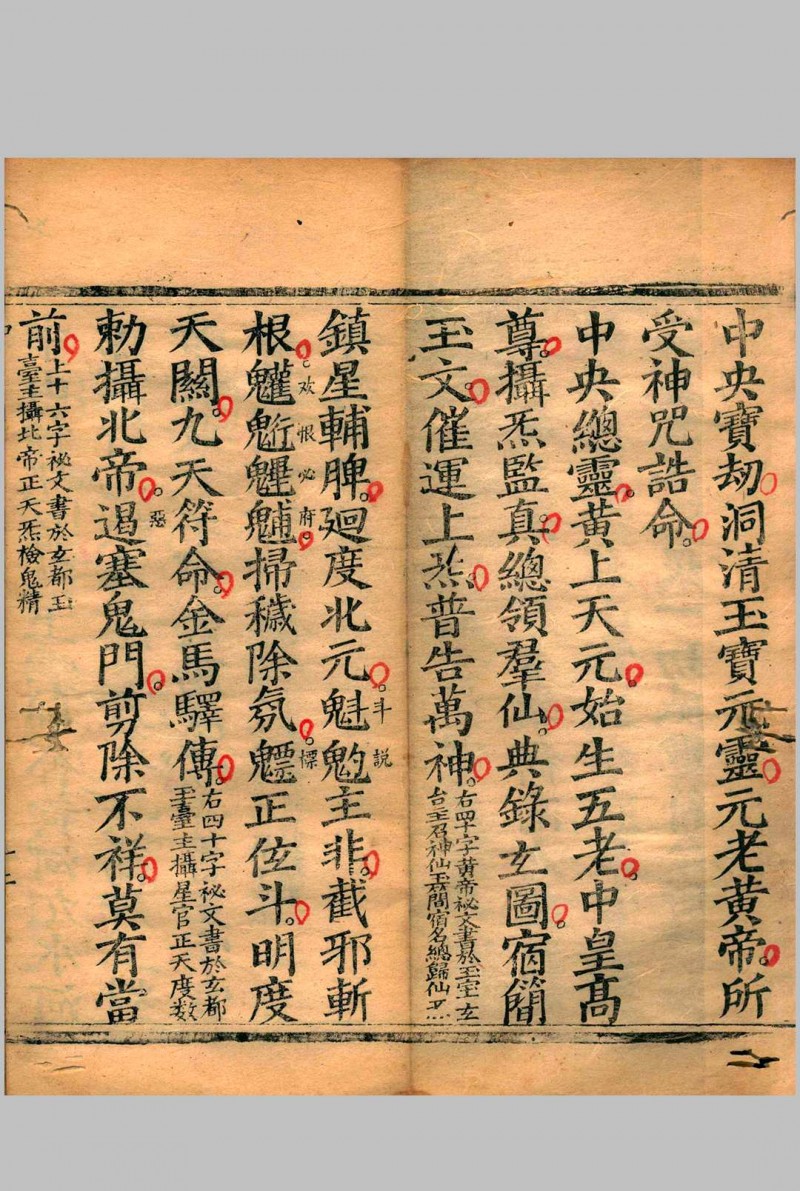 中央寶劫洞清玉寶元靈元老黃帝所
受神咒誥命
中央總靈黃上天元始生五老中皇高
尊攝炁監真總領羣仙典錄玄圖宿簡
玉文催運上炁普告萬神
右四十字黃帝祕文書於玉室玄
台主召神仙玉簡宿名總歸仙
鎮星輔脾廻度北元魁魡主非截邪斬
斗說
根魓䰢魓䰷掃穢除氛魒正位斗明度
欢恨必府
標
天關九天符命金馬驛傳
右四十字祕文書於玄都
玉臺主攝星官正天度数
勅攝北帝遏塞鬼門剪除不祥莫有當
惡
前
上十六字祕文書於玄都玉
臺主攝北帝正天炁檢鬼精